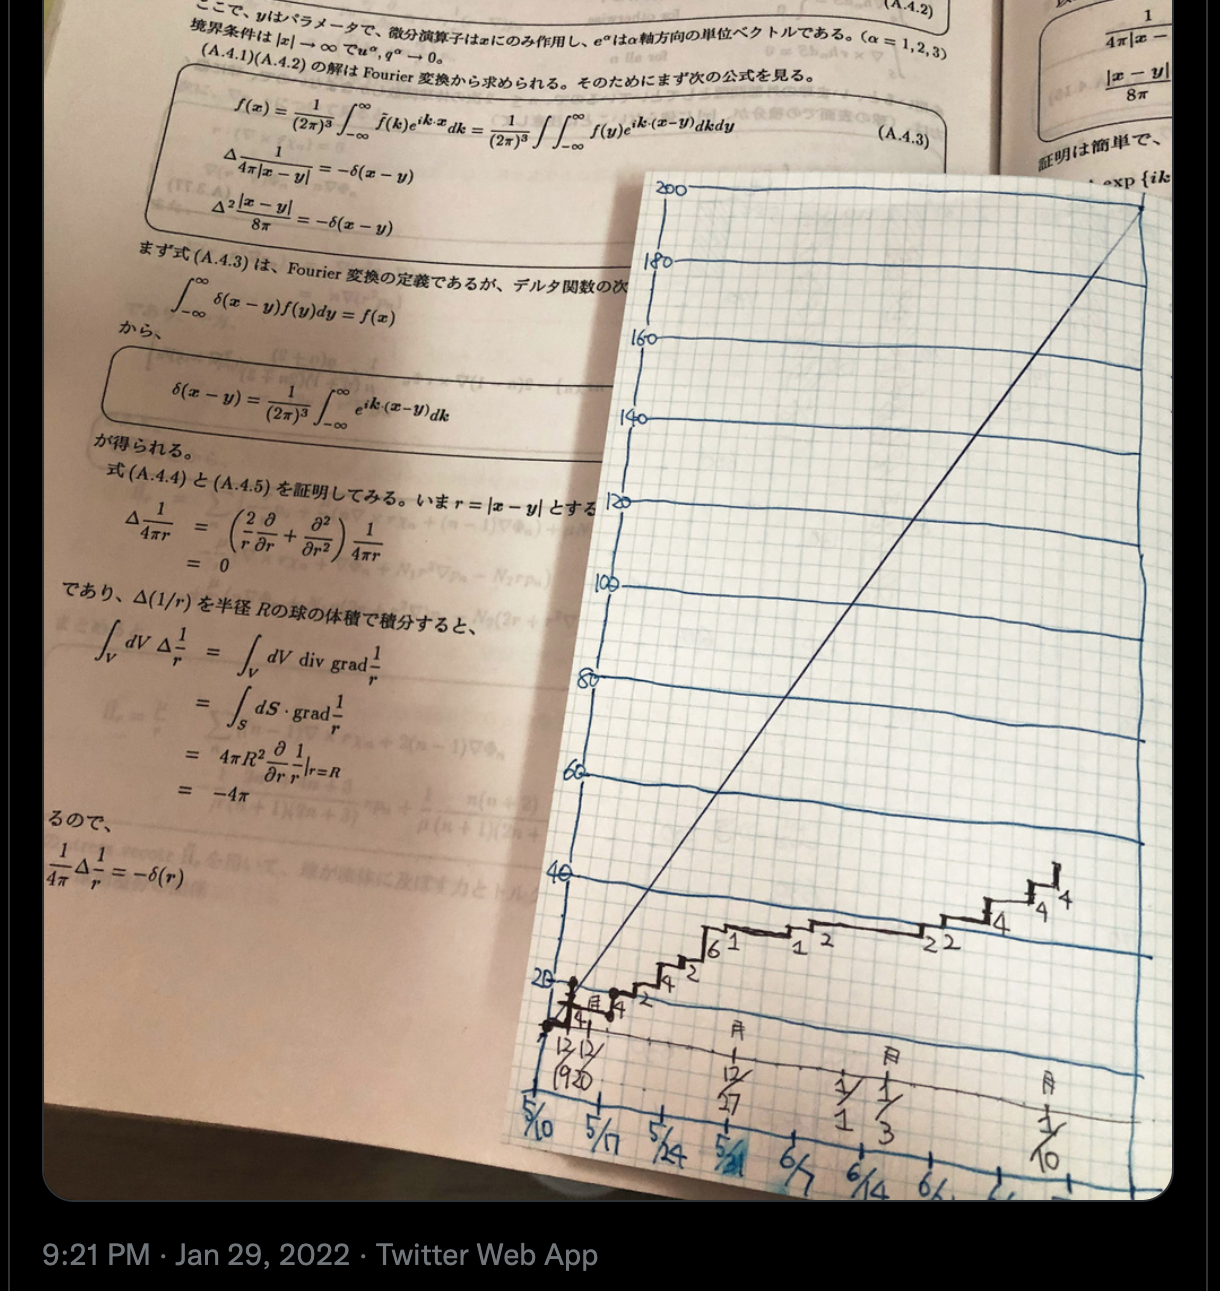 (A.4.2)
ここで、yはパラメータで、微分演算子はxにのみ作用し、e^αはα軸方向の単位ベクトルである。(α = 1, 2, 3)
境界条件は |x| → ∞ でu^α, q^α → 0。
(A.4.1)(A.4.2) の解は Fourier 変換から求められる。そのためにまず次の公式を見る。
f(x) = 1/(2π)³ ∫_{-∞}^{∞} f̃(k)e^{ik·x}dk = 1/(2π)³ ∫∫_{-∞}^{∞} f(y)e^{ik·(x−y)}dkdy (A.4.3)
Δ 1/4π|x − y| = −δ(x − y)
Δ² |x − y|/8π = −δ(x − y)
まず式 (A.4.3) は、Fourier 変換の定義であるが、デルタ関数の次
∫_{-∞}^{∞} δ(x − y)f(y)dy = f(x)
から、
δ(x − y) = 1/(2π)³ ∫_{-∞}^{∞} e^{ik·(x−y)}dk
が得られる。
式 (A.4.4) と (A.4.5) を証明してみる。いま r = |x − y| とする
Δ 1/4πr = (2/r ∂/∂r + ∂²/∂r²) 1/4πr
= 0
であり、Δ(1/r) を半径 Rの球の体積で積分すると、
∫_V dV Δ 1/r = ∫_V dV div grad 1/r
= ∫_S dS · grad 1/r
= 4πR² ∂/∂r 1/r |r=R
= −4π
るので、
1/4π Δ 1/r = −δ(r)
1
4π|x −
|x − y|
8π
証明は簡単で、
exp {ik
200
180
160
140
120
100
80
60
40
20
4
月
4
2
4
2
6
1
1
2
2
2
4
4
4
12/19
12/20
月
12/27
1/1
月
1/3
月
1/10
5/10
5/17
5/24
5/31
6/7
6/14
6/
9:21 PM · Jan 29, 2022 · Twitter Web App